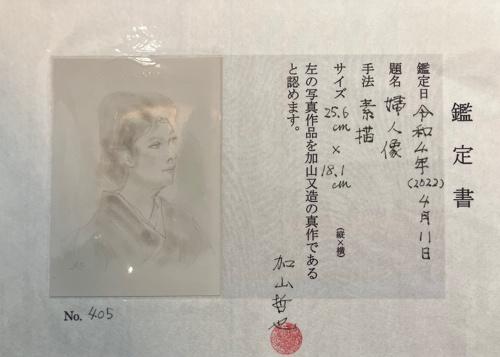 鑑定書
鑑定日 令和4年(2022)4月11日
題名 婦人像
手法 素描
サイズ 25.6cm × 18.1cm (縦×横)
左の写真作品を加山又造の真作である
と認めます。
加山哲也
No. 405